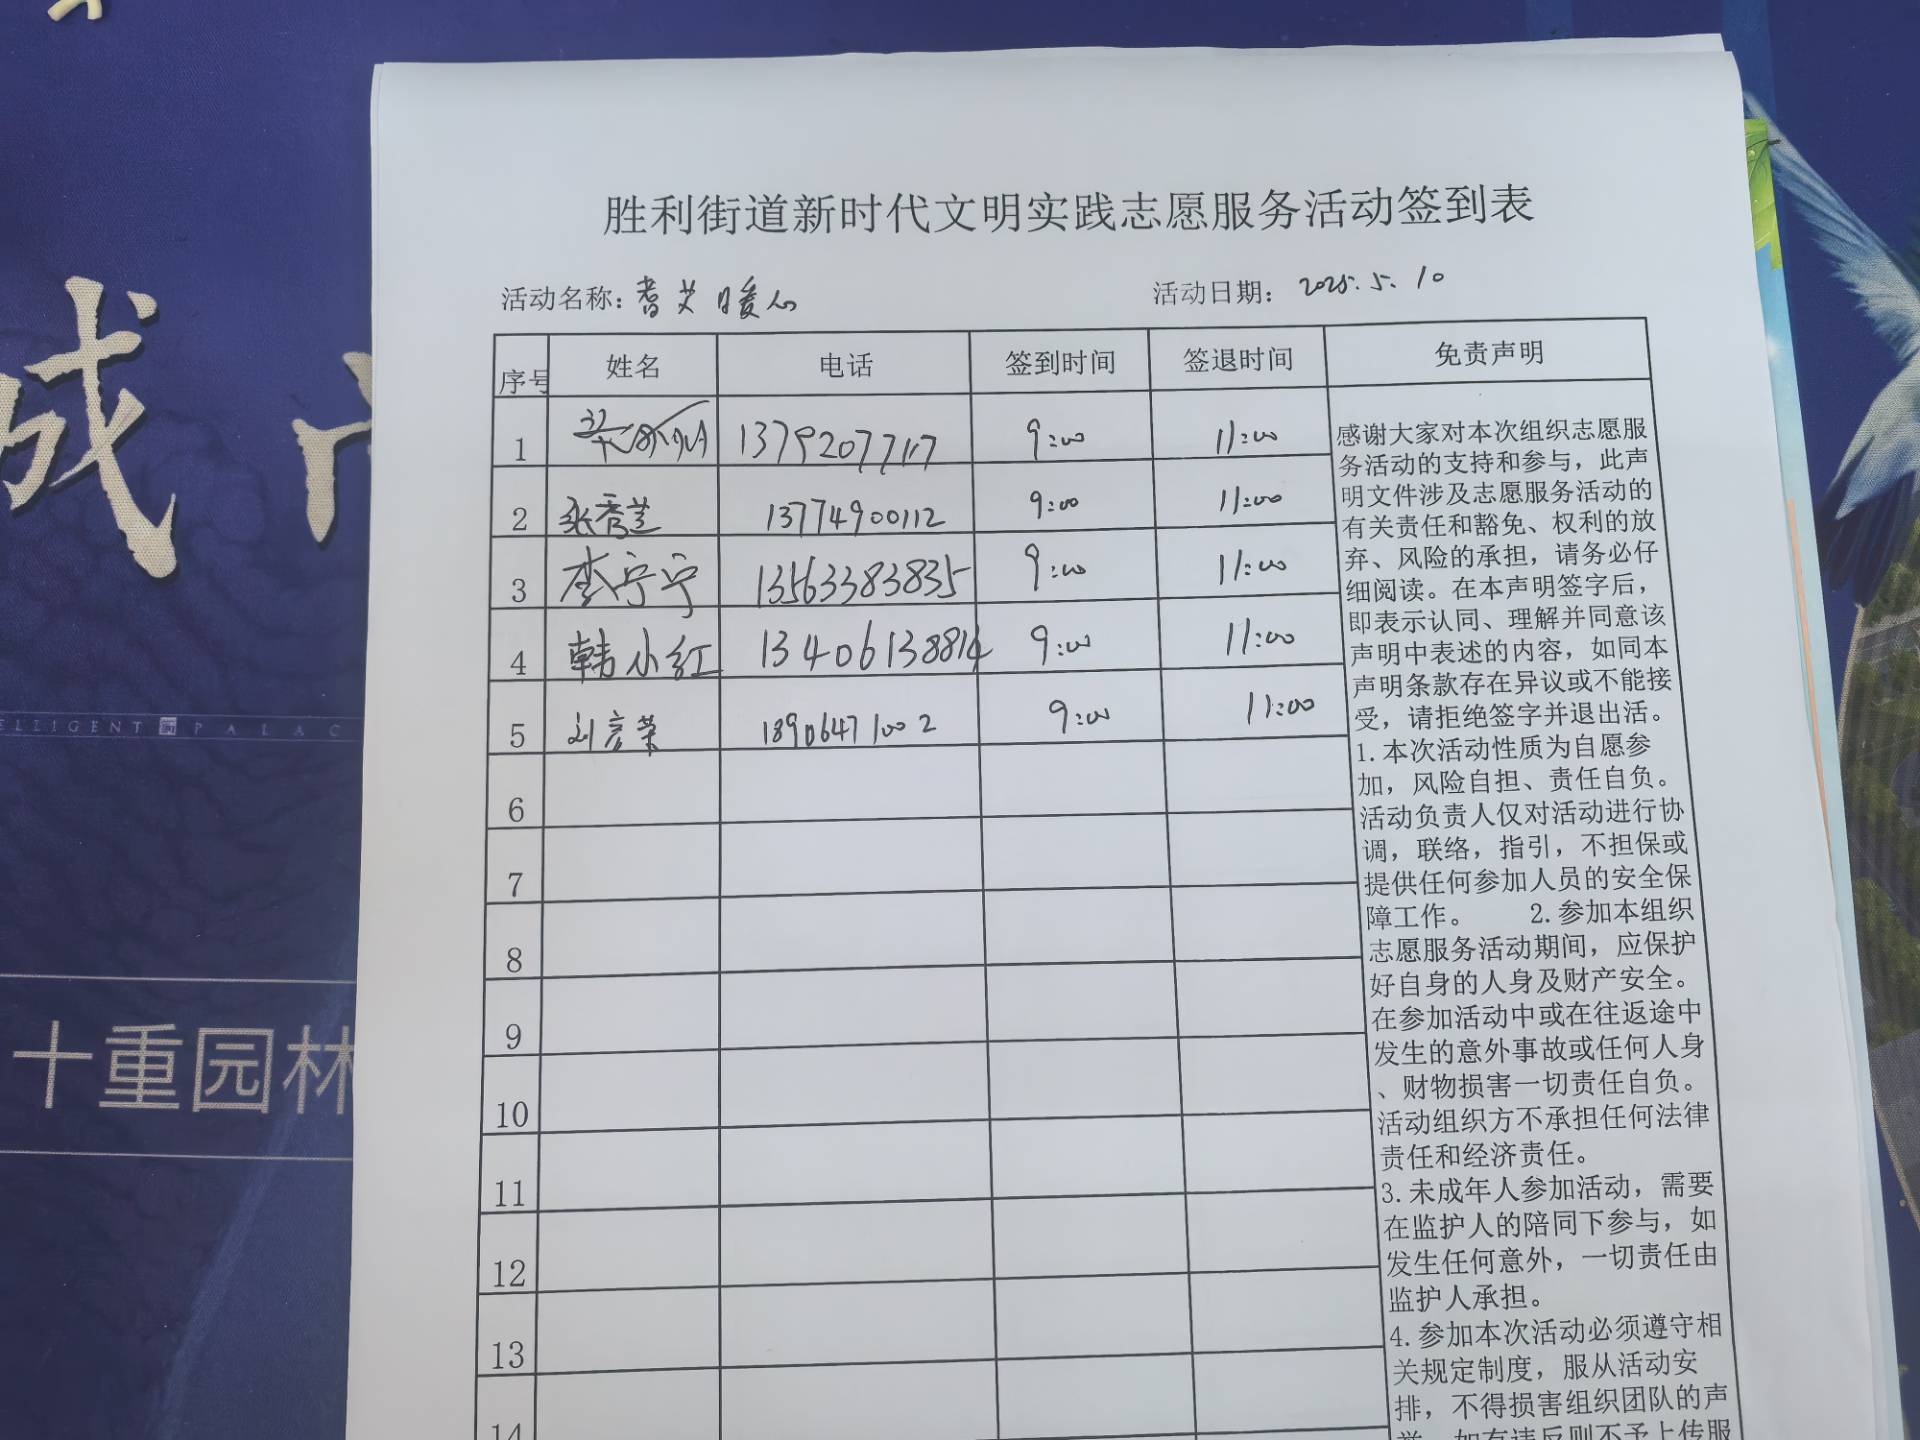 胜利街道新时代文明实践志愿服务活动签到表
活动名称：耆艾暖心 活动日期：2025.5.10
序号 姓名 电话 签到时间 签退时间 免责声明
1 13792077117 9:00 11:00
2 张秀兰 13774900112 9:00 11:00
3 李宁宁 13563383835 9:00 11:00
4 韩小红 13406138814 9:00 11:00
5 刘彦荣 13906471002 9:00 11:00
6
7
8
9
10
11
12
13
14
感谢大家对本次组织志愿服
务活动的支持和参与，此声
明文件涉及志愿服务活动的
有关责任和豁免、权利的放
弃、风险的承担，请务必仔
细阅读。在本声明签字后，
即表示认同、理解并同意该
声明中表述的内容，如同本
声明条款存在异议或不能接
受，请拒绝签字并退出活。
1.本次活动性质为自愿参
加，风险自担、责任自负。
活动负责人仅对活动进行协
调，联络，指引，不担保或
提供任何参加人员的安全保
障工作。 2.参加本组织
志愿服务活动期间，应保护
好自身的人身及财产安全。
在参加活动中或在往返途中
发生的意外事故或任何人身
、财物损害一切责任自负。
活动组织方不承担任何法律
责任和经济责任。
3.未成年人参加活动，需要
在监护人的陪同下参与，如
发生任何意外，一切责任由
监护人承担。
4.参加本次活动必须遵守相
关规定制度，服从活动安
排，不得损害组织团队的声
誉，如有违反则不予上传服
成
ELLIGENT PALAC
十重园林